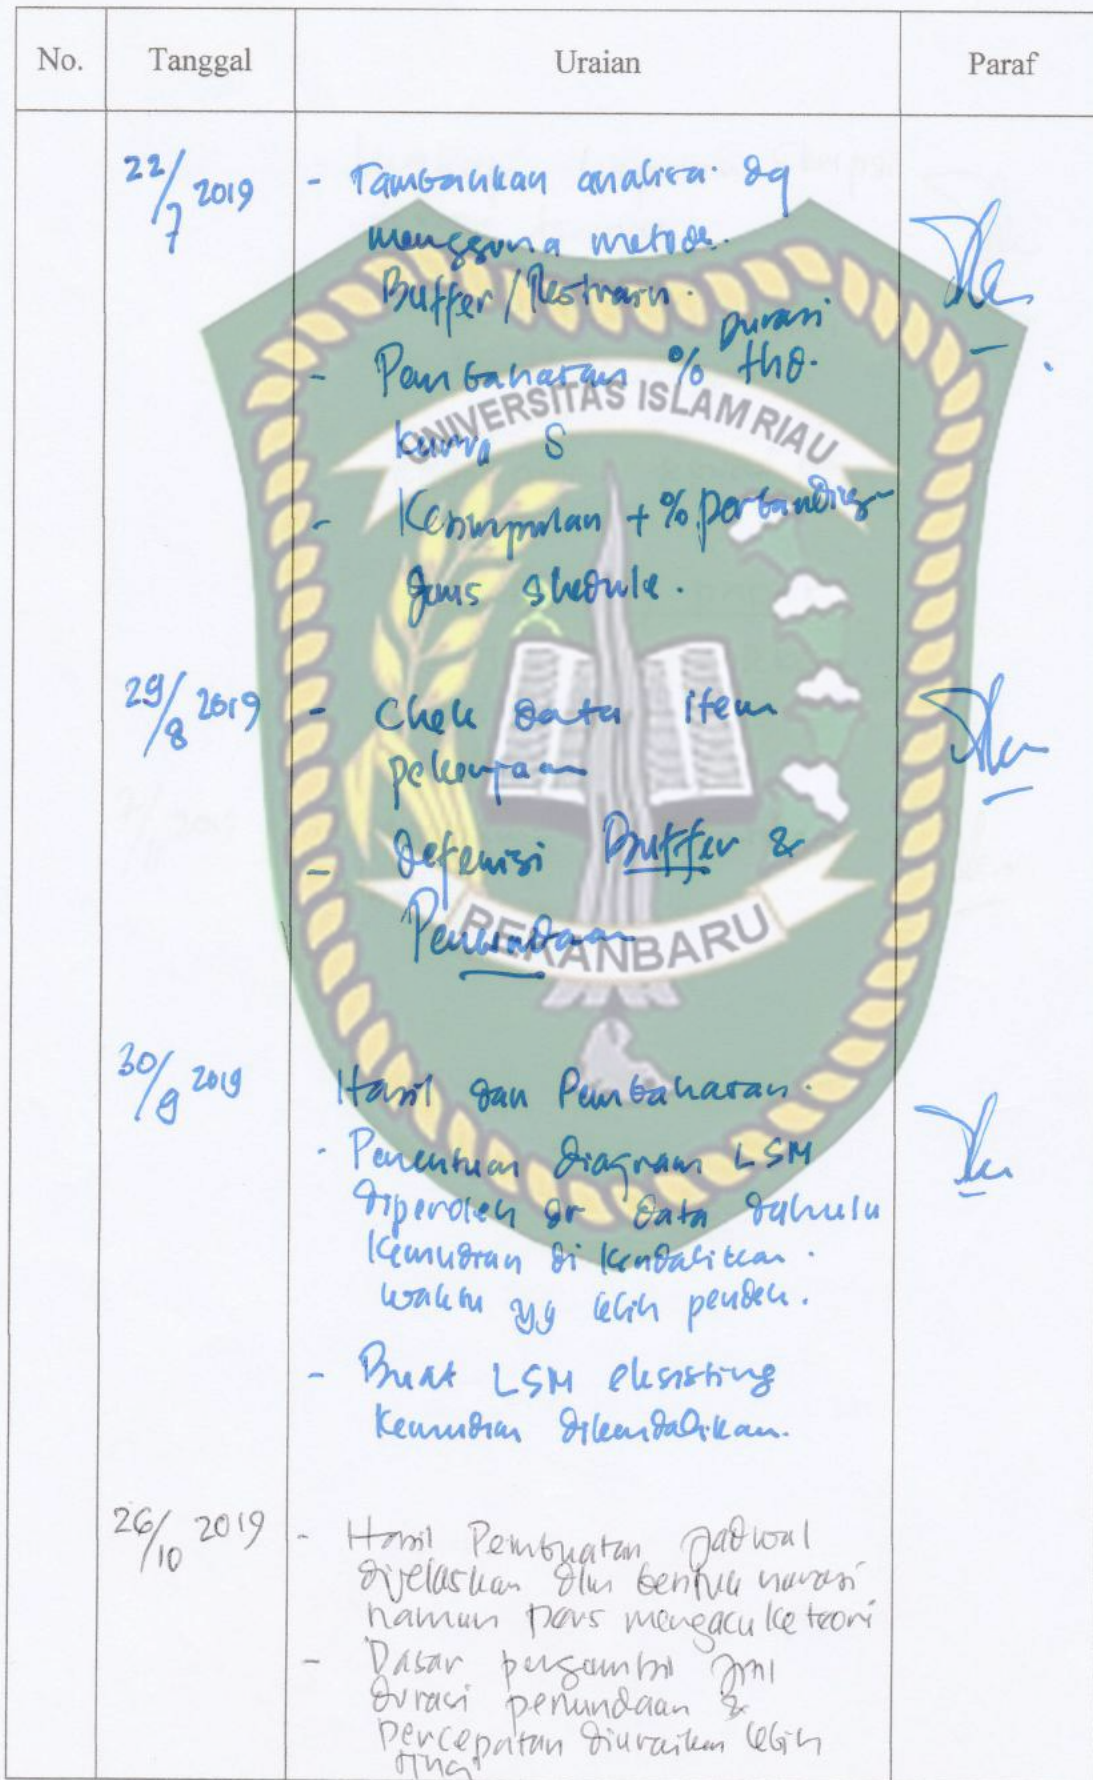 No. Tanggal Uraian Paraf
22/7 2019 - Tambahkan analisa dg
mengguna metode
Buffer/Restrain.
Durasi
- Pembahasan % thd.
kurva S
- Kesimpulan + % perbanding
jenis shedule.
UNIVERSITAS ISLAM RIAU
29/8 2019 - Chek data item
pekerjaan
- defenisi Buffer &
Penundaan
PEKANBARU
30/9 2019 Hasil dan Pembahasan.
- Penentuan diagram LSM
diperoleh dr data dahulu
Kemudian di kendalikan.
waktu yg lebih pendek.
- Buat LSM eksisting
Kemudian dikendalikan.
26/10 2019 - Hasil Pembuatan jadwal
dijelaskan dlm bentuk narasi
namun mengacu ke teori
- Dasar pengambil jml
durasi penundaan &
percepatan diuraikan lebih